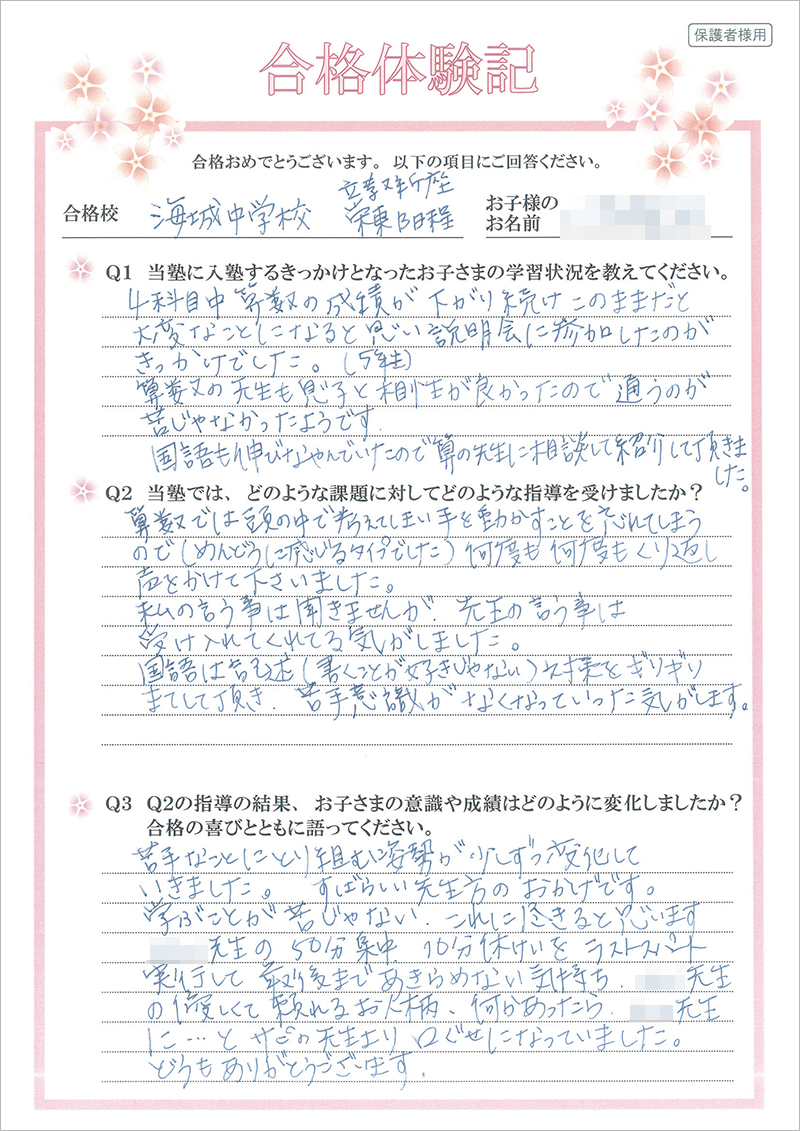 保護者様用
合格体験記
合格おめでとうございます。以下の項目にご回答ください。
合格校 海城中学校 立教新座 栄東B日程 お子様のお名前
Q1 当塾に入塾するきっかけとなったお子さまの学習状況を教えてください。
4科目中算数の成績が下がり続けこのままだと
大変なことになると思い説明会に参加したのが
きっかけでした。(5年生)
算数の先生も息子と相性が良かったので通うのが
苦じゃなかったようです.
国語も伸びなやんでいたので算の先生に相談して紹介して頂きま
した。
Q2 当塾では、どのような課題に対してどのような指導を受けましたか？
算数では頭の中で考えてしまい手を動かすことを忘れてしまう
ので(めんどうに感じるタイプでした)何度も何度もくり返し
声をかけて下さいました。
私の言う事は聞きませんが. 先生の言う事は
受け入れてくれてる気がしました。
国語は記述(書くことが好きじゃない)対策をギリギリ
までして頂き. 苦手意識がなくなっていった気がします。
Q3 Q2の指導の結果、お子さまの意識や成績はどのように変化しましたか？
合格の喜びとともに語ってください。
苦手なことにとり組む姿勢が少しずつ変化して
いきました。 すばらしい先生方のおかげです。
学ぶことが苦じゃない. これに尽きると思います
先生の50分集中 10分休けいをラストスパート
実行して最後まであきらめない気持ち. 先生
の優しくて頼れるお人柄、何かあったら. 先生
に…と の先生より口ぐせになっていました。
どうもありがとうございます.